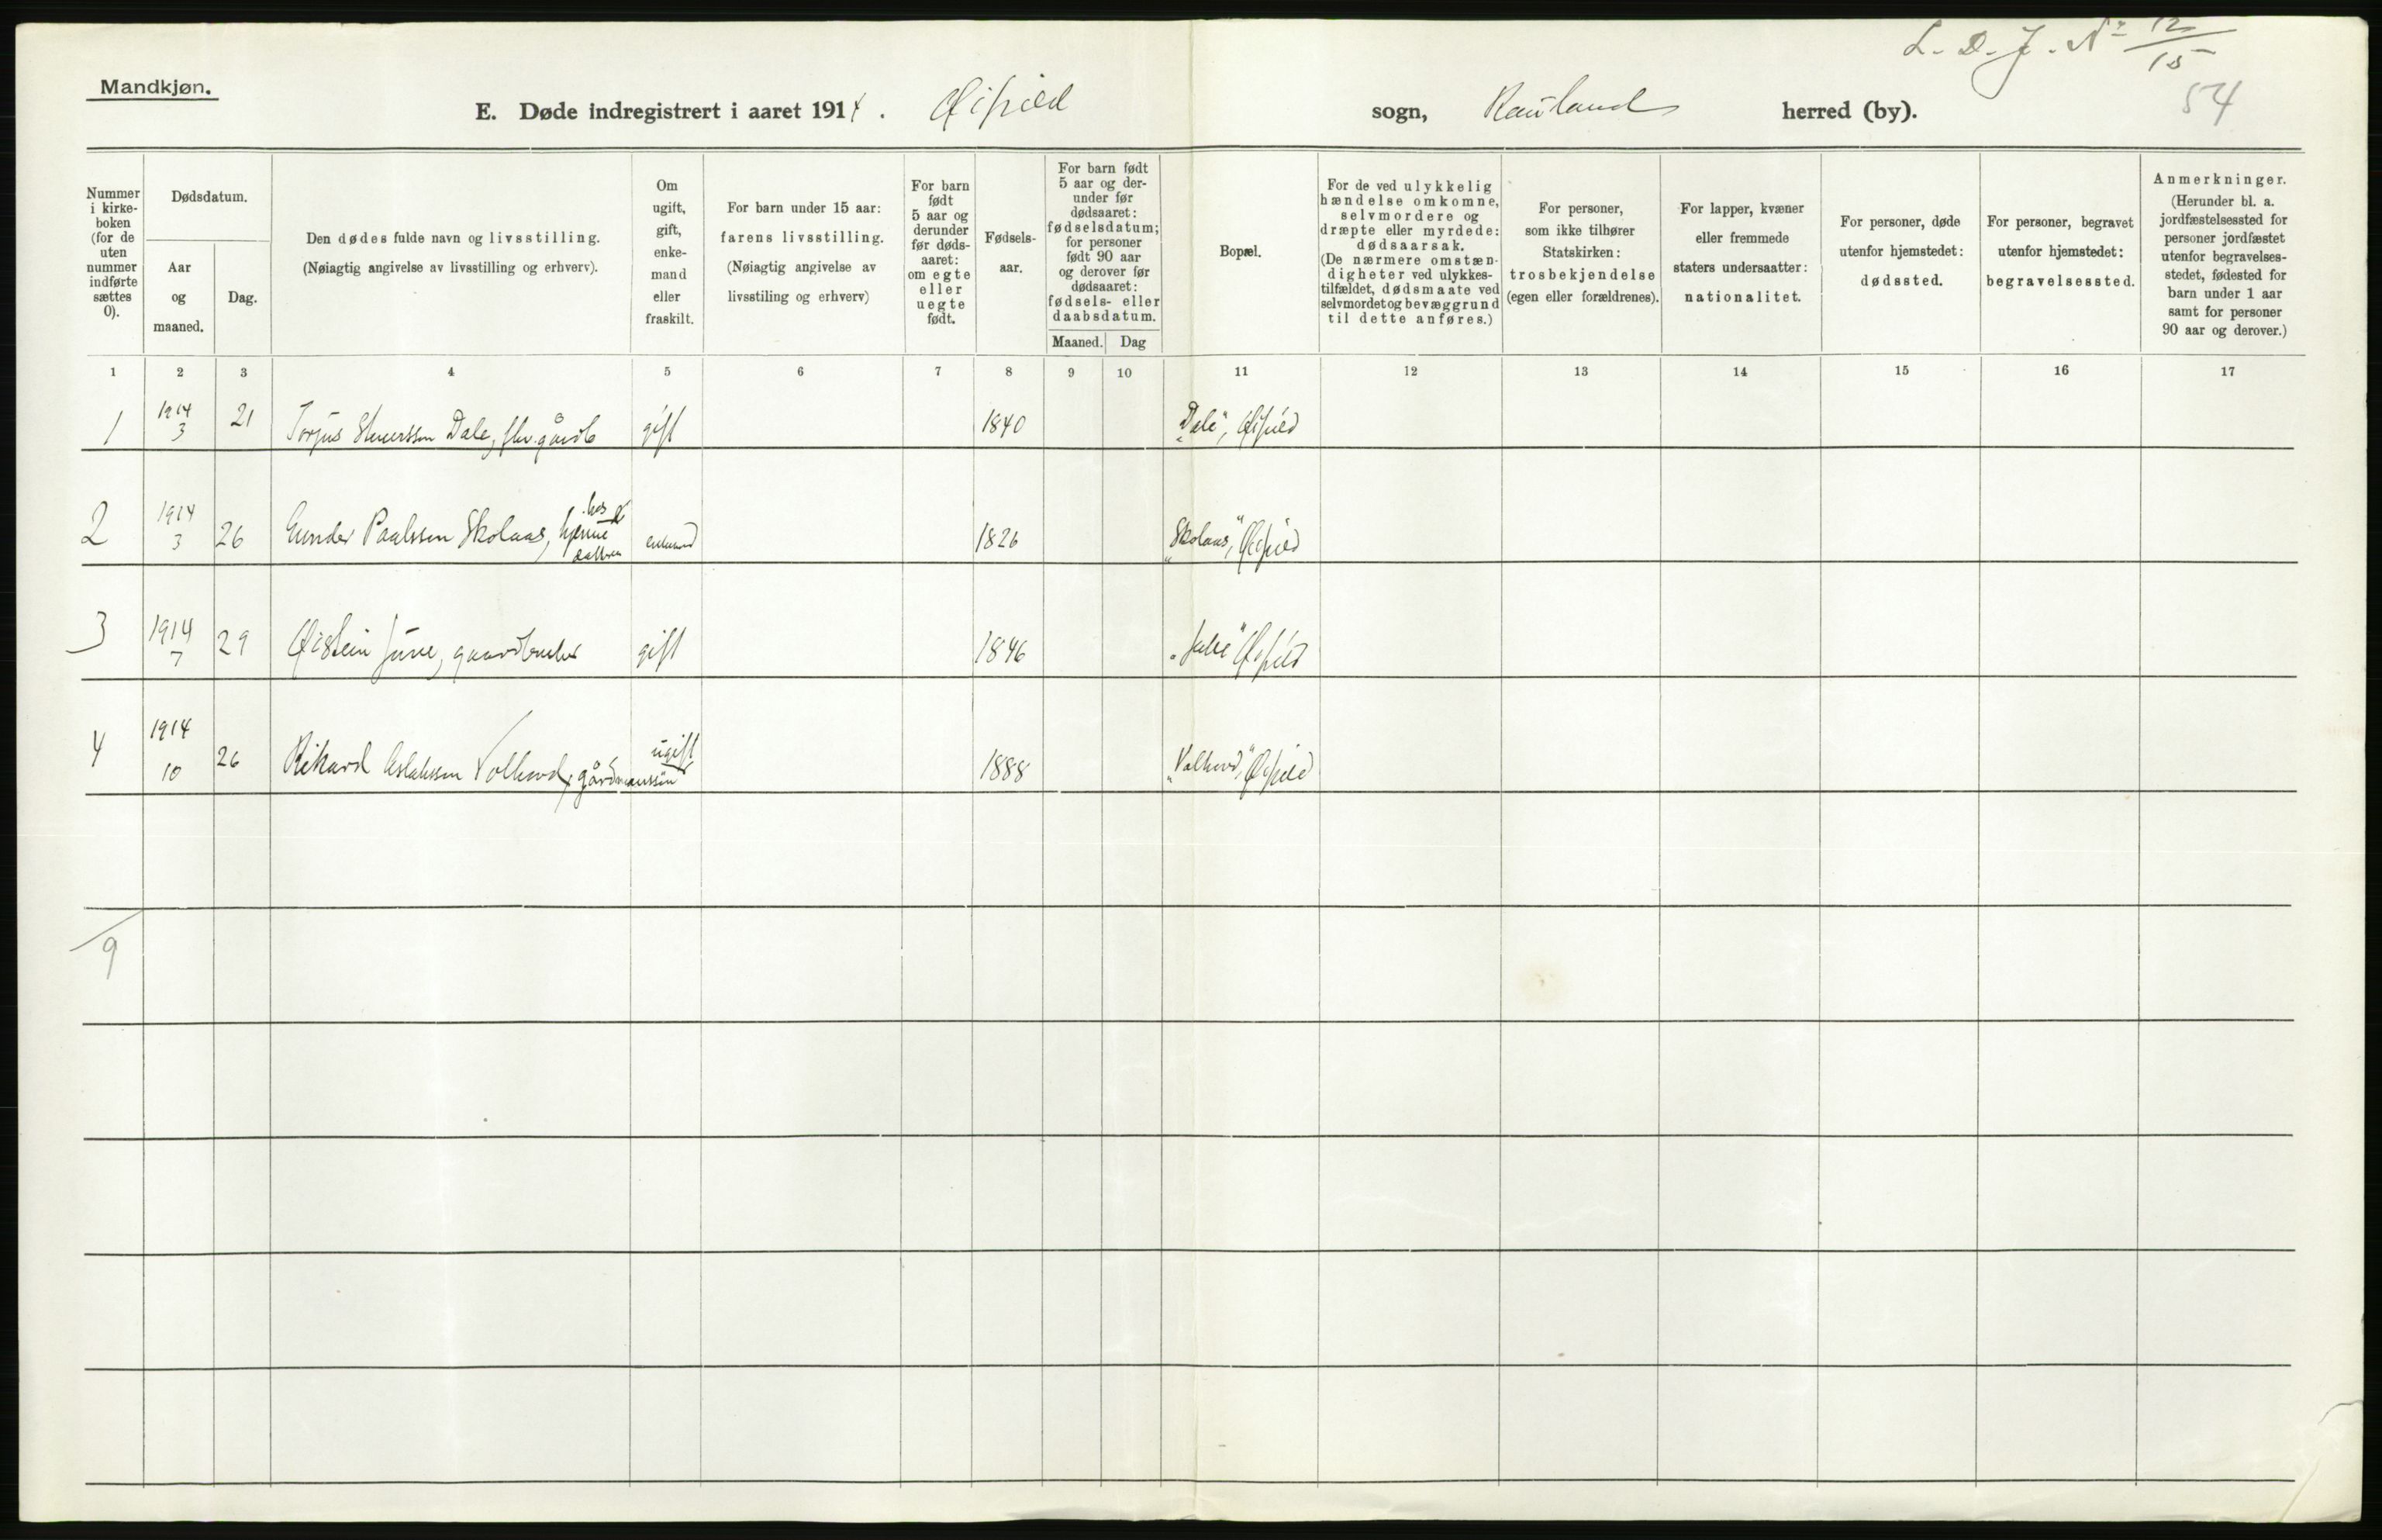 L. D. J. Nr 12/15
54
Mandkjøn.
E. Døde indregistrert i aaret 1914. Øifield sogn, Rauland herred (by).
Nummer i kirke-boken (for de uten nummer indførte sættes 0).
Dødsdatum.
Aar og maaned.
Dag.
Den dødes fulde navn og livsstilling.
(Nøiagtig angivelse av livsstilling og erhverv).
Om ugift, gift, enke-mand eller fraskilt.
For barn under 15 aar:
farens livsstilling.
(Nøiagtig angivelse av
livsstiling og erhverv)
For barn født 5 aar og derunder før døds-aaret: om egte eller uegte født.
Fødsels-aar.
For barn født 5 aar og der-under før dødsaaret: fødselsdatum; for personer født 90 aar og derover før dødsaaret: fødsels- eller daabsdatum.
Maaned. Dag
Bopæl.
For de ved ulykkelig hændelse omkomne, selvmordere og dræpte eller myrdede: dødsaarsak.
(De nærmere omstæn-digheter ved ulykkes-tilfældet, dødsmaate ved selvmordet og bevæggrund til dette anføres.)
For personer, som ikke tilhører Statskirken: trosbekjendelse (egen eller forældrenes).
For lapper, kvæner eller fremmede staters undersaatter: nationalitet.
For personer, døde utenfor hjemstedet: dødssted.
For personer, begravet utenfor hjemstedet: begravelsessted.
Anmerkninger.
(Herunder bl. a. jordfæstelsessted for personer jordfæstet utenfor begravelses-stedet, fødested for barn under 1 aar samt for personer 90 aar og derover.)
1 2 3 4 5 6 7 8 9 10 11 12 13 14 15 16 17
1 1914 3 21 Torjus Dale, gift 1840 "Dale", Øifield
2 1914 3 26 Gunder Paalssen Skolaas, hos enkem. 1826 "Skolaas", Øifield
3 1914 7 29 Øistein gaardbruker gift 1846 Øifield
4 1914 10 26 Rikard Aslakssen gårdmanssøn ugift 1888 Øifield
9